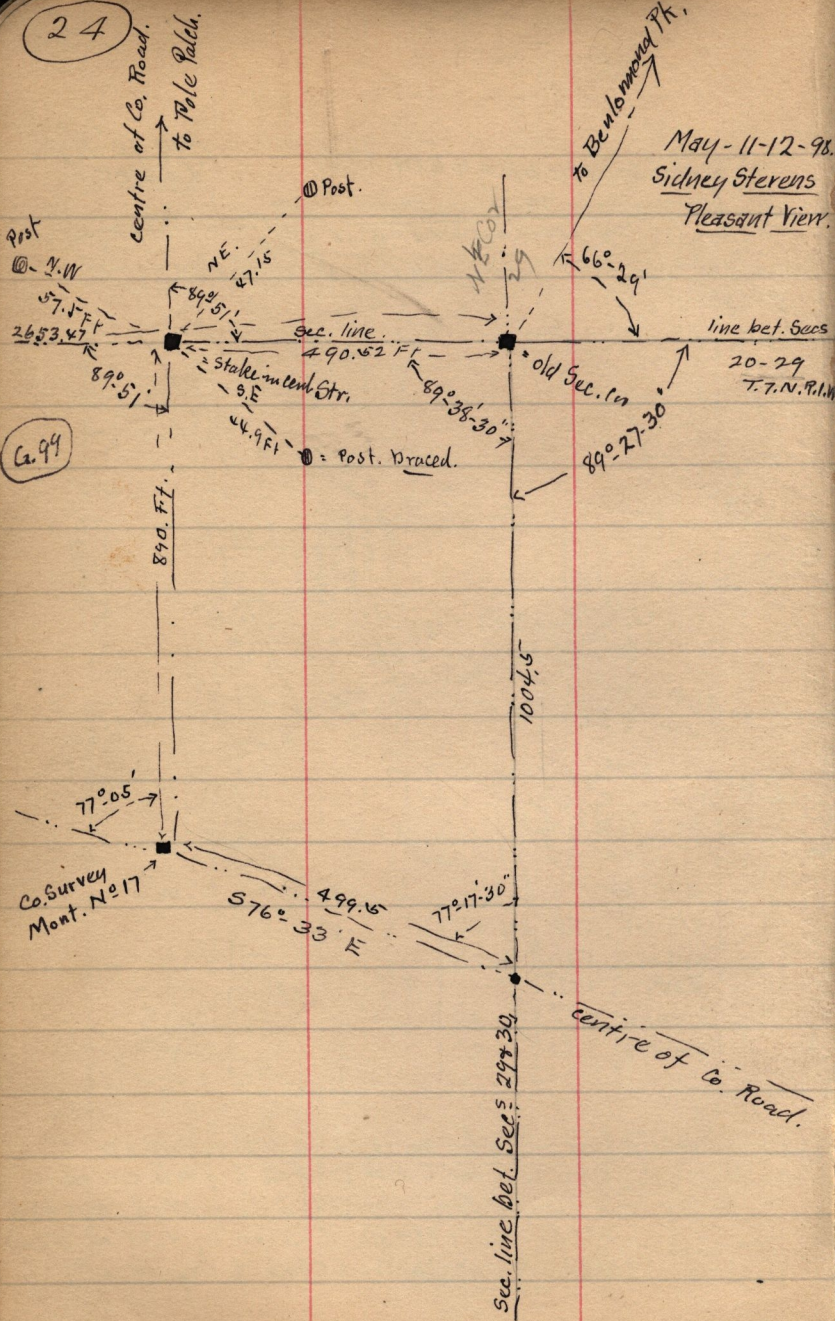 24
centre of Co. Road.
to Pole Patch.
to Benlomond Pk.
May-11-12-98.
Sidney Stevens
Pleasant View.
Post.
Post
N.W
57.5 Ft
N.E.
47.15
89°-51'
66°-29'
29
2653.47
sec. line.
490.52 Ft
line bet. Secs
20-29
T.7.N.R.1.W
= Stake in cent Str.
= old Sec. Cn
89°-51'
S.E
44.9 Ft
89°-38'-30"
89°-27-30"
G.99
= Post. Braced.
890. Ft.
1004.5
77°-05'
Co. Survey
Mont. No 17
499.5
S 76°-33' E
77°-17'-30"
centre of Co. Road.
Sec. line bet. Secs 29&30